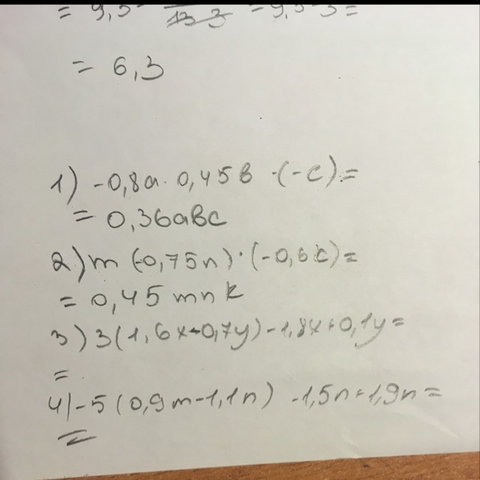 = 6,3
1) -0,8a · 0,45в · (-c) =
= 0,36aвc
2) m (-0,75n) · (-0,6k) =
= 0,45 mnk
3) 3(1,6x-0,7y) -1,8x+0,1y=
=
4) -5 (0,9m-1,1n) -1,5n+1,9n=
=